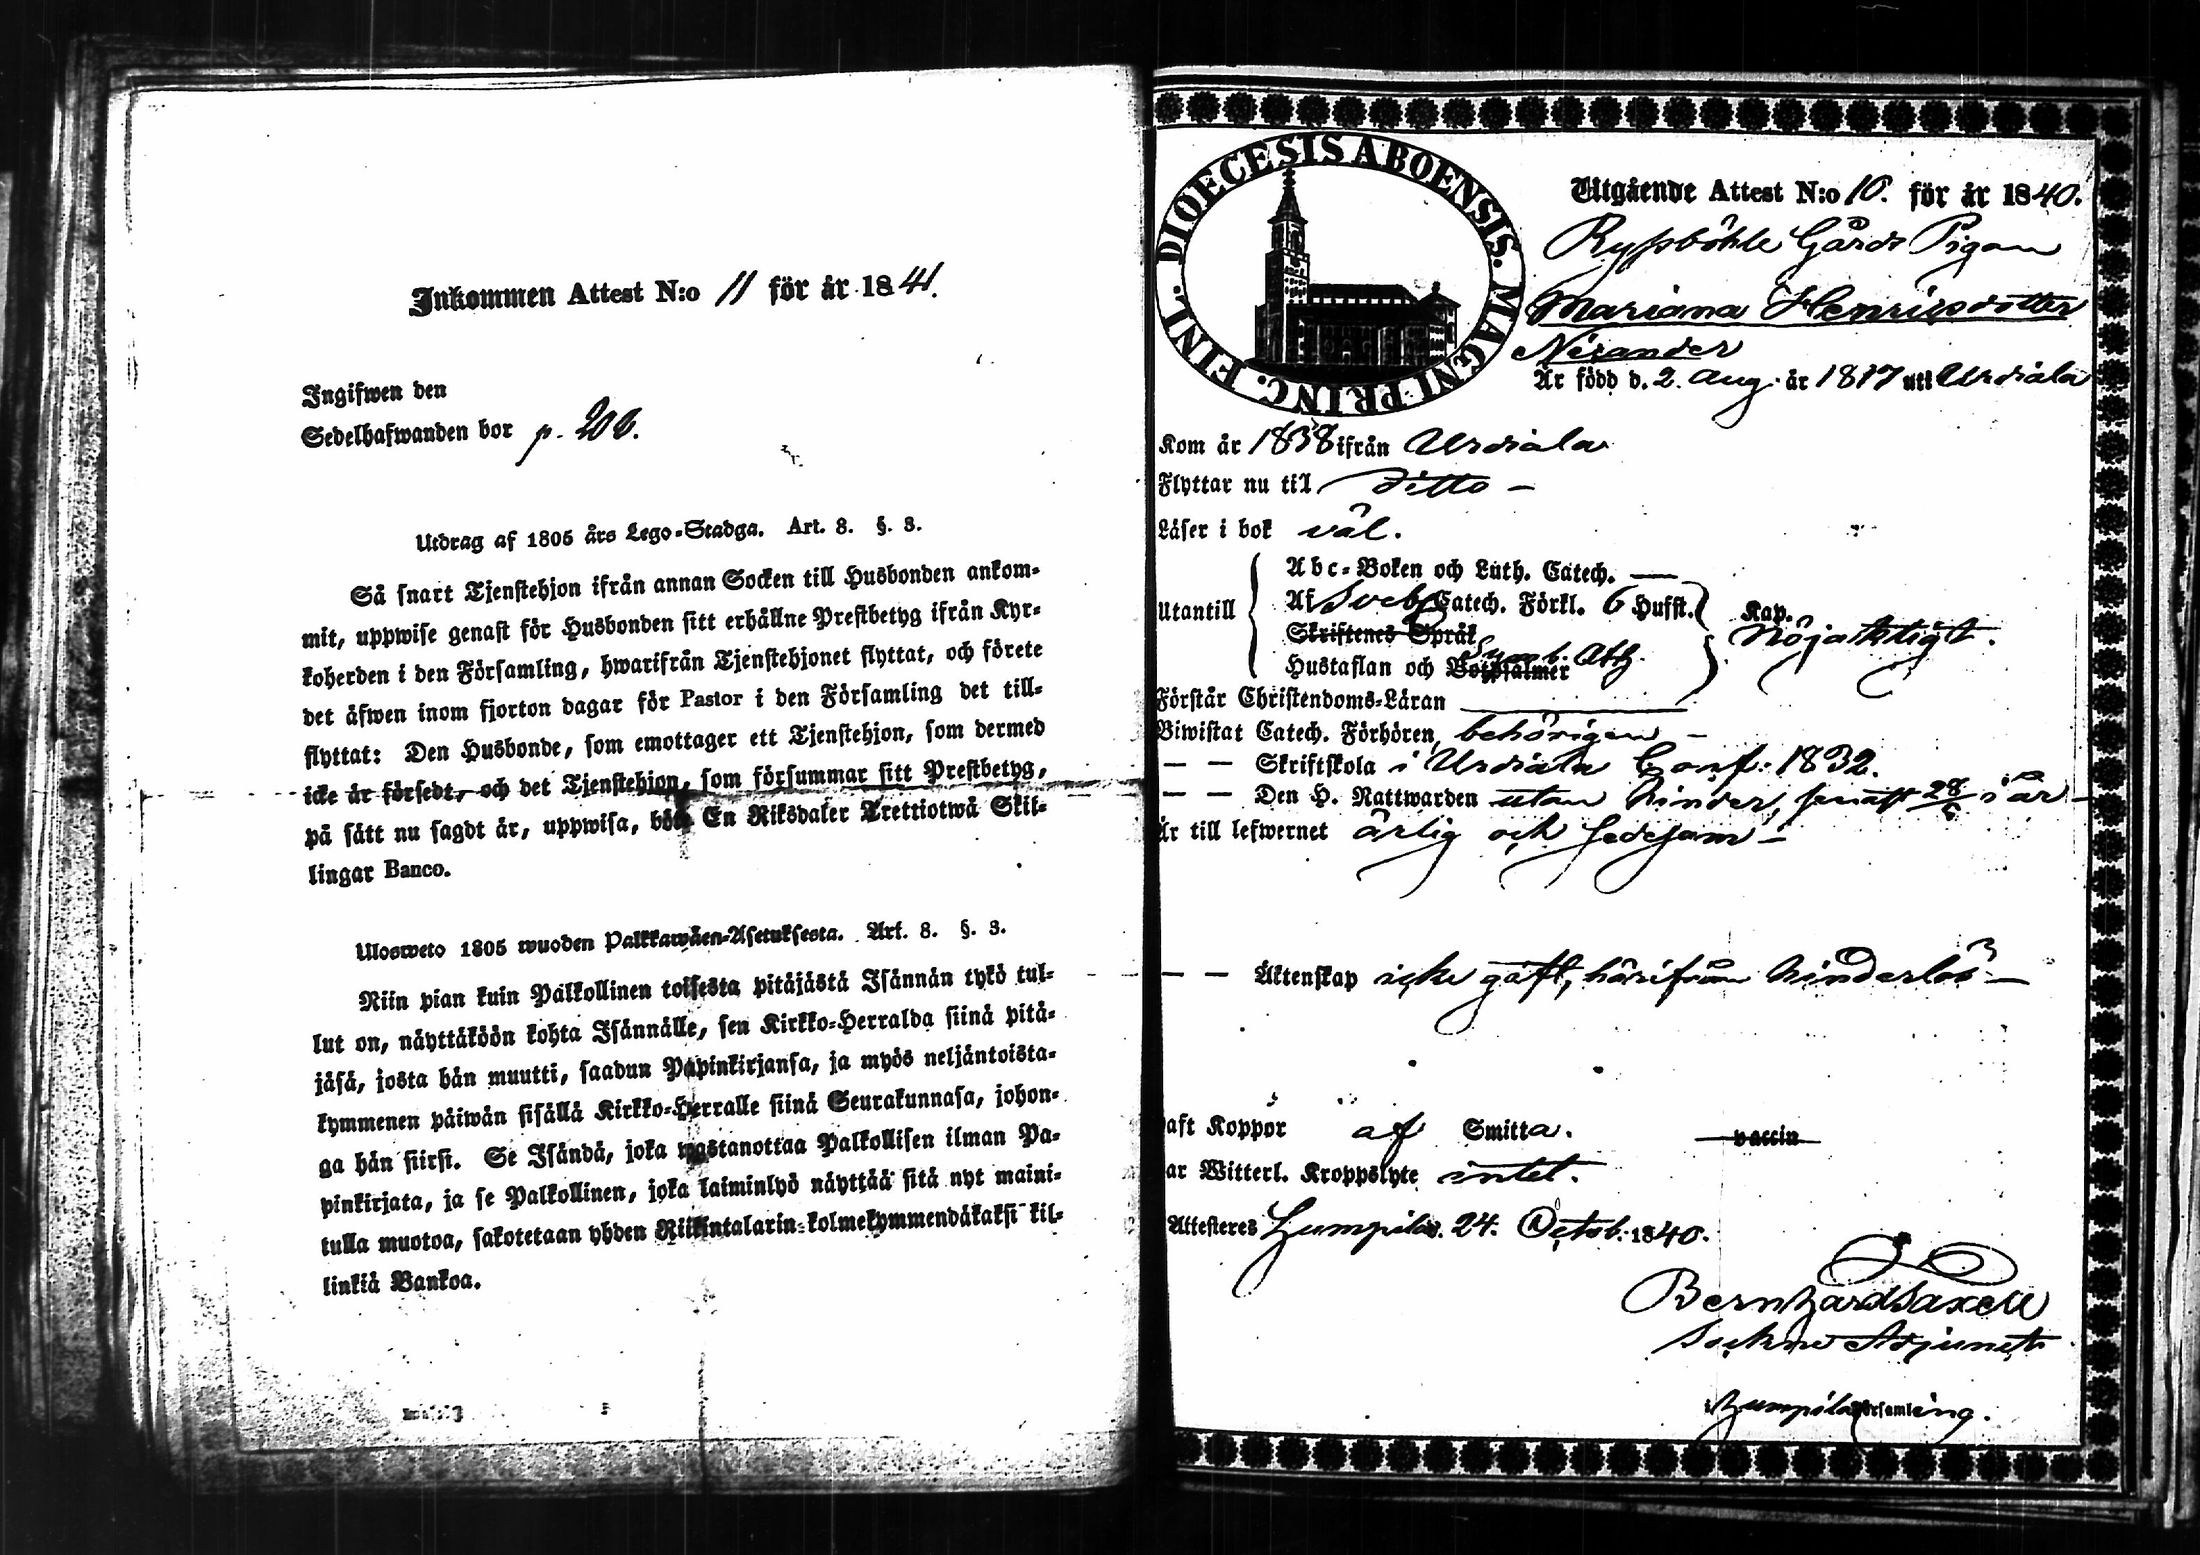 Inkommen Attest N:o 11 för år 1841.
Ingifwen den
Sedelhafwanden bor p. 206.
Utdrag af 1805 års Lego-Stadga. Art. 8. §. 3.
Så snart Tjenstehjon ifrån annan Socken till Husbonden ankom-
mit, uppwise genast för Husbonden sitt erhållne Prestbetyg ifrån Kyr-
koherden i den Församling, hwarifrån Tjenstehjonet flyttat, och förete
det äfwen inom fjorton dagar för Pastor i den Församling det till-
flyttat: Den Husbonde, som emottager ett Tjenstehjon, som dermed
icke är försedt, och det Tjenstehjon, som försummar sitt Prestbetyg,
på sätt nu sagdt är, uppwisa, böte En Riksdaler Trettiotwå Skil-
lingar Banco.
Ulosweto 1805 wuoden Palkkawäen-Asetuksesta. Art. 8. §. 3.
Niin pian kuin Palkollinen toisesta pitäjästä Isännän tykö tul-
lut on, näyttäköön kohta Isännälle, sen Kirkko-Herralda siinä pitä-
jäsä, josta hän muutti, saadun Papinkirjansa, ja myös neljäntoista-
kymmenen päiwän sisällä Kirkko-Herralle siinä Seurakunnasa, johon-
ga hän siirsi. Se Isändä, joka wastanottaa Palkollisen ilman Pa-
pinkirjata, ja se Palkollinen, joka laiminlyö näyttää sitä nyt maini-
tulla muotoa, sakotetaan yhden Riikintalarin kolmekymmendäkaksi kil-
linkiä Bankoa.
DIOECESIS ABOENSIS. MAGNI PRINC. FINL.
Utgående Attest N:o 10. för år 1840.
Ryssböhle Gårds Pigan
Mariana Henricsdotter
Nirander
Är född d. 2. Aug. år 1817 uti Urdiala
Kom år 1838 ifrån Urdiala
Flyttar nu till Ditto –
Läser i bok väl.
Utantill
Abc-Boken och Luth. Catech. —
Af Sveb. Catech. Förkl. 6 Hufst. Kap.
Skriftenes Språk nöjaktigt.
Hustaflan och Botpsalmer Symb. Ath.
Förstår Christendoms-Läran
Biwistat Catech. Förhören behörigen –
— — Skriftskola i Urdiala Conf: 1832.
— — Den H. Nattwarden utan hinder, senast 28/6 i år –
Är till lefwernet ärlig och sedesam –
— — Äktenskap icke gift, härifrån hinderlös –
aft Koppor af Smitta. vaccin
ar Witterl. Kroppslyte intet.
Attesteres Zumpila. 24. Octob. 1840.
Bernhard Saxell
Sockne Adjunct
i Zumpila församling.